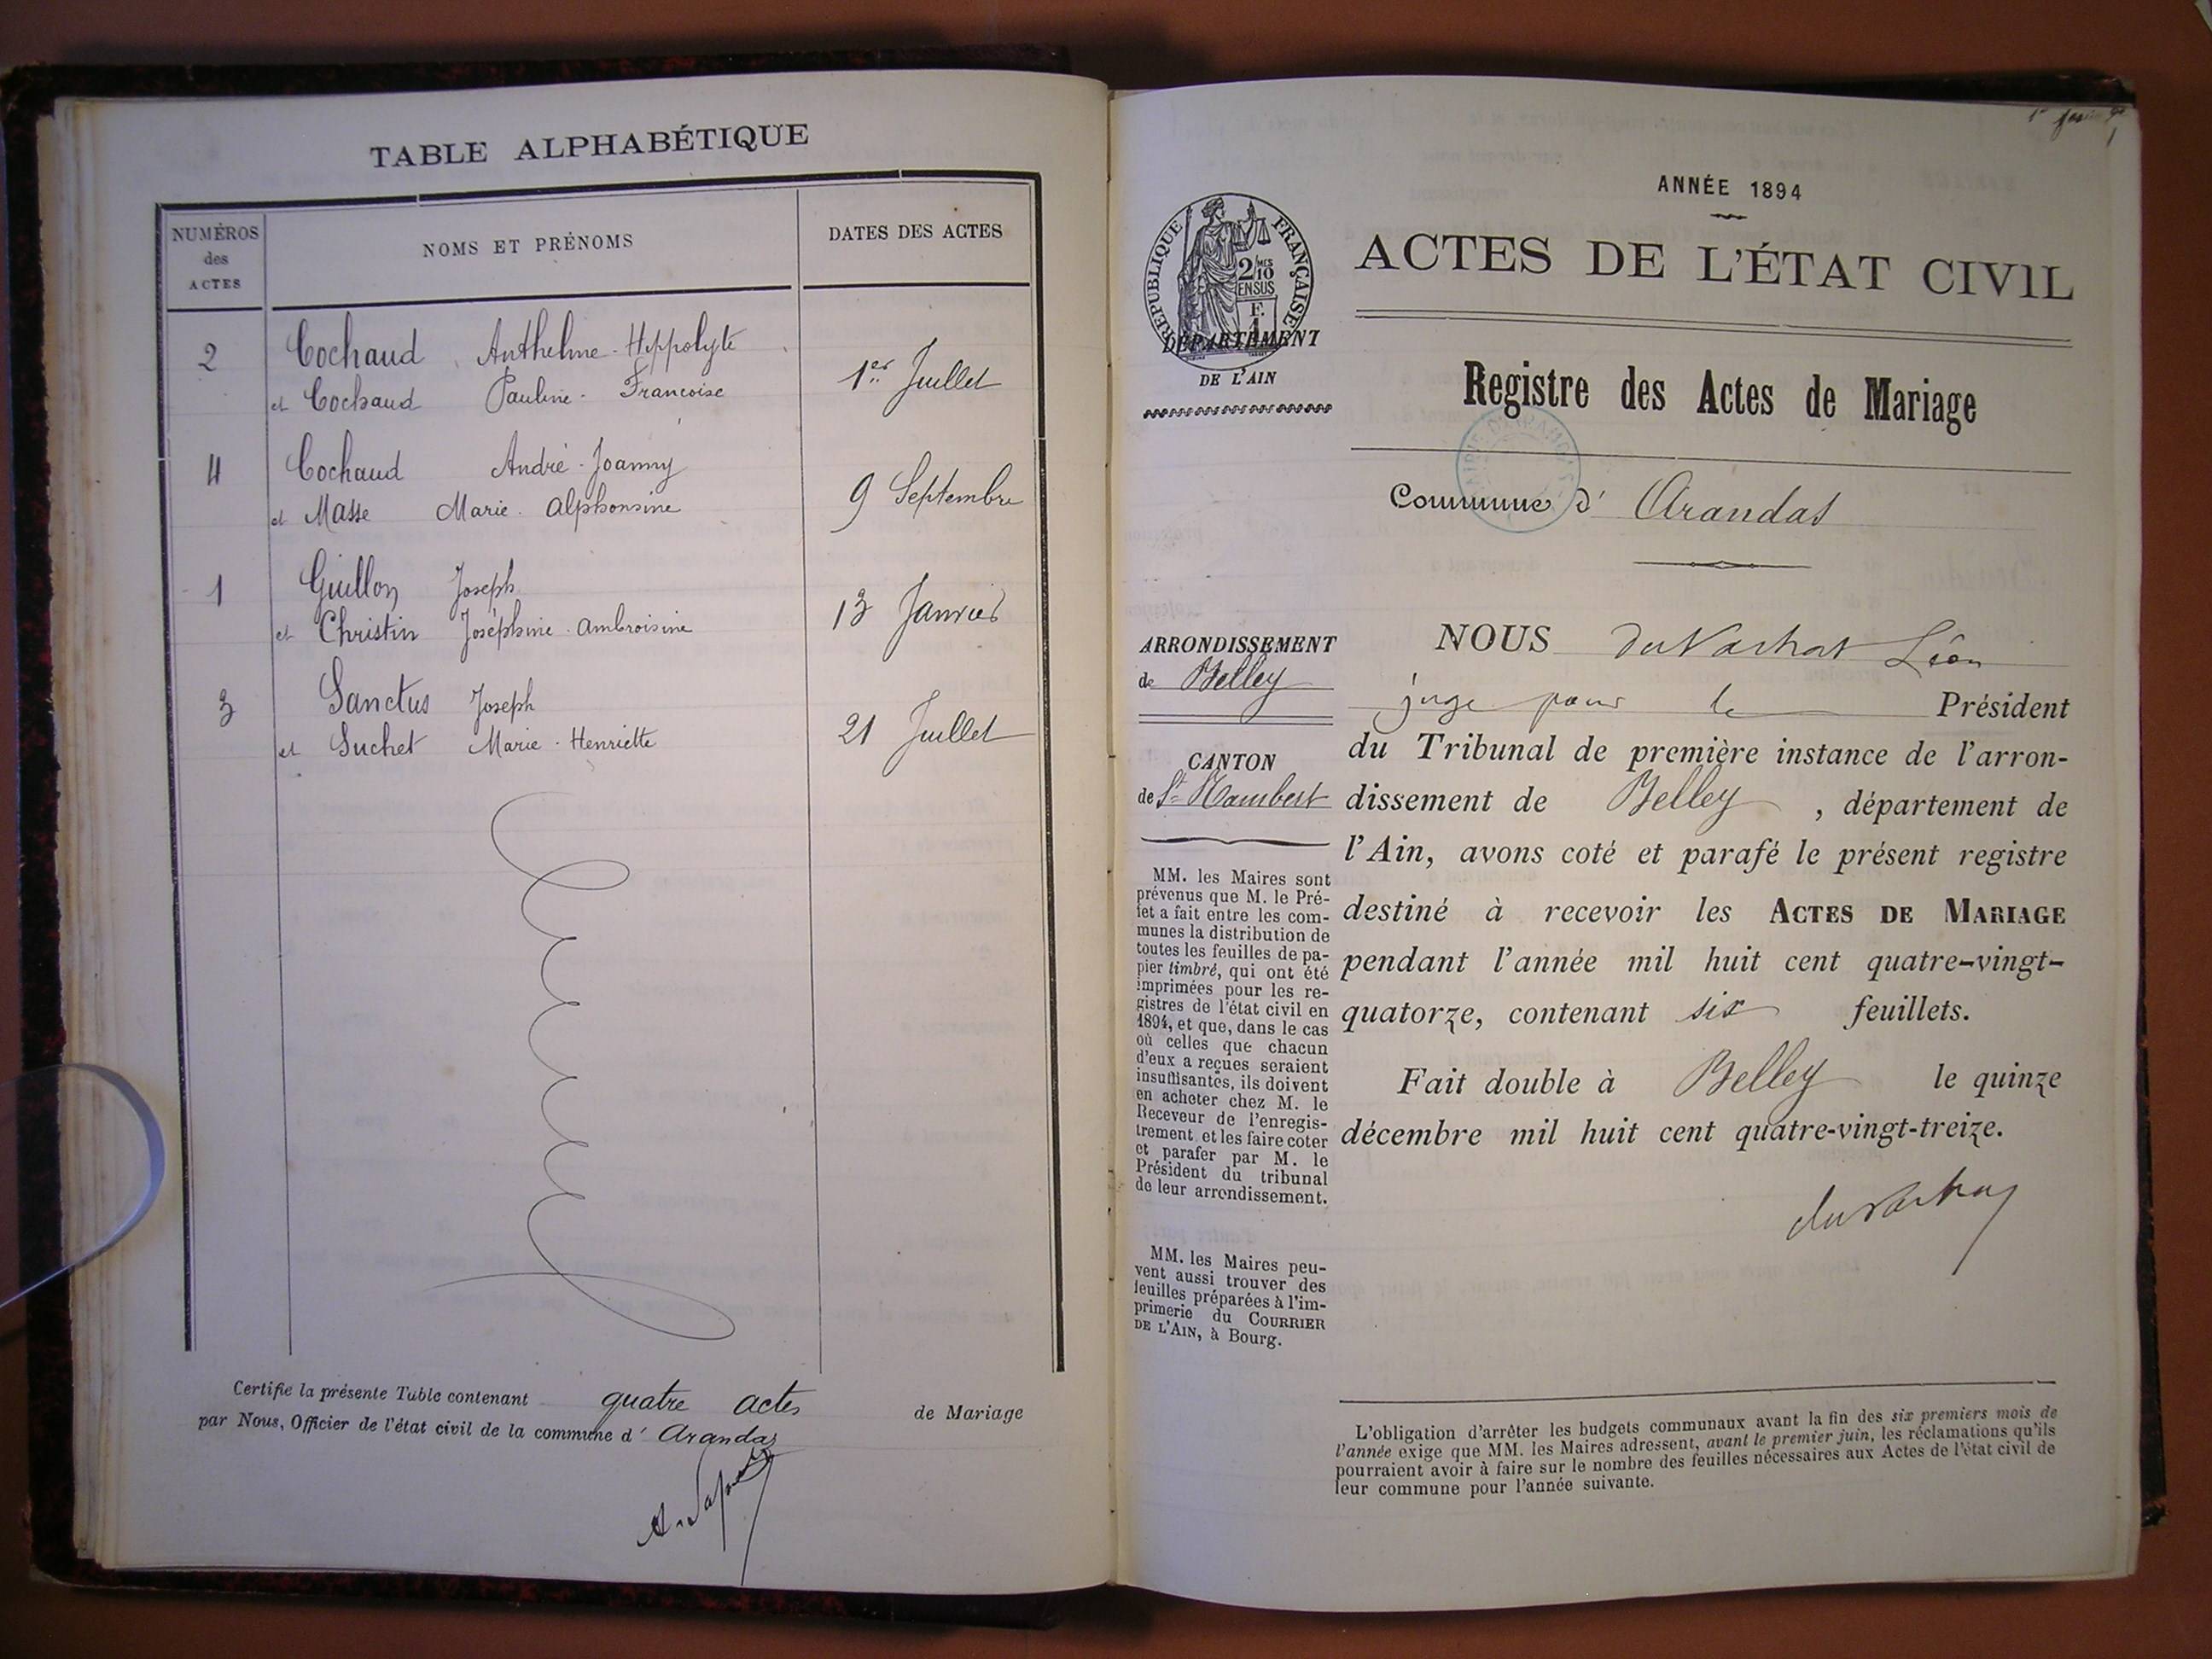 TABLE ALPHABÉTIQUE
NUMÉROS
des
ACTES
NOMS ET PRÉNOMS
DATES DES ACTES
2 Cochaud Anthelme-Hippolyte
et Cochaud Pauline-Françoise
1er Juillet
4 Cochaud André-Joanny
et Masse Marie-Alphonsine
9 Septembre
1 Guillon Joseph
et Christin Joséphine-Ambroisine
13 Janvier
3 Sanctus Joseph
et Suchet Marie-Henriette
21 Juillet
Certifie la présente Table contenant quatre actes de Mariage
par Nous, Officier de l'état civil de la commune d' Arandas
1er
1
ANNÉE 1894
RÉPUBLIQUE FRANÇAISE
2/10 MES
EN SUS
F.
1
DÉPARTEMENT
DE L'AIN
ACTES DE L'ÉTAT CIVIL
Registre des Actes de Mariage
Commune d' Arandas
ARRONDISSEMENT
de Belley
CANTON
de St Rambert
MM. les Maires sont
prévenus que M. le Pré-
fet a fait entre les com-
munes la distribution de
toutes les feuilles de pa-
pier timbré, qui ont été
imprimées pour les re-
gistres de l'état civil en
1894, et que, dans le cas
où celles que chacun
d'eux a reçues seraient
insuffisantes, ils doivent
en acheter chez M. le
Receveur de l'enregis-
trement et les faire coter
et parafer par M. le
Président du tribunal
de leur arrondissement.
MM. les Maires peu-
vent aussi trouver des
feuilles préparées à l'im-
primerie du COURRIER
DE L'AIN, à Bourg.
NOUS du Vachat Léon
juge pour le Président
du Tribunal de première instance de l'arron-
dissement de Belley , département de
l'Ain, avons coté et parafé le présent registre
destiné à recevoir les ACTES DE MARIAGE
pendant l'année mil huit cent quatre-vingt-
quatorze, contenant six feuillets.
Fait double à Belley le quinze
décembre mil huit cent quatre-vingt-treize.
du Vachat
L'obligation d'arrêter les budgets communaux avant la fin des six premiers mois de
l'année exige que MM. les Maires adressent, avant le premier juin, les réclamations qu'ils
pourraient avoir à faire sur le nombre des feuilles nécessaires aux Actes de l'état civil de
leur commune pour l'année suivante.